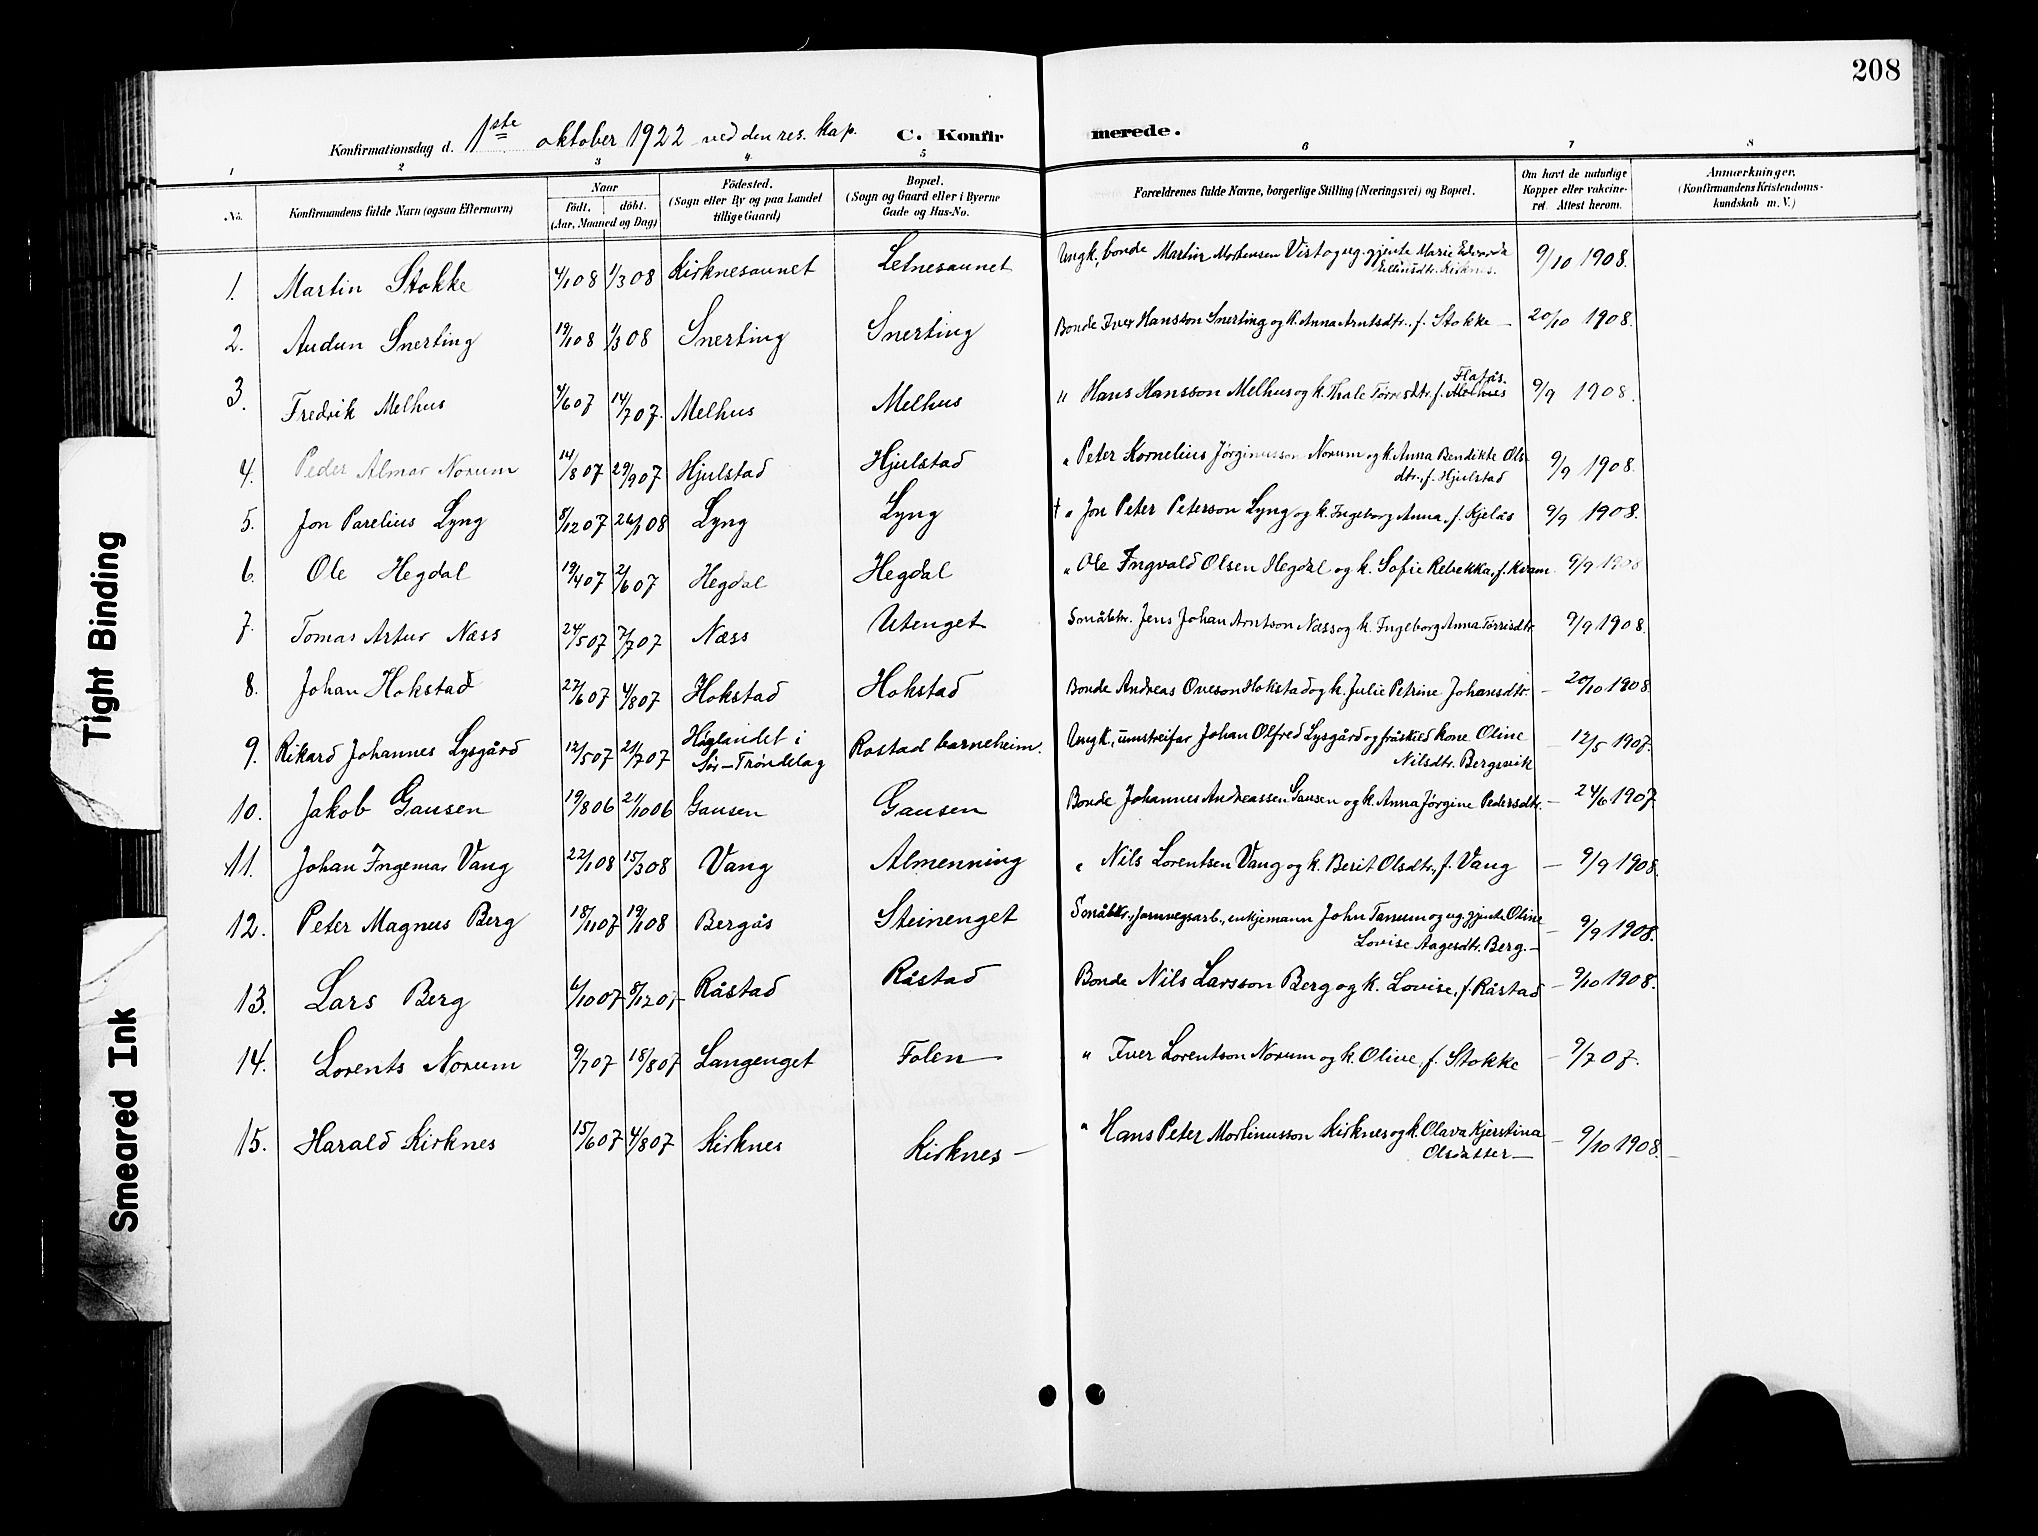 208
Konfirmationsdag d. 1ste oktober 1922 ved den res. kap. C. Konfirmerede.
1 2 3 4 5 6 7 8
No. Konfirmandens fulde Navn (ogsaa Efternavn) Naar födt. döbt. (Aar, Maaned og Dag) Födested. (Sogn eller By og paa Landet tillige Gaard) Bopæl. (Sogn og Gaard eller i Byerne Gade og Hus-No. Forældrenes fulde Navne, borgerlige Stilling (Næringsvei) og Bopæl. Om havt de naturlige Kopper eller vaccineret. Attest herom. Anmærkninger. (Konfirmandens Kristendomskundskab m. V.)
1. Martin Stokke 4/1 08 1/3 08 Kirknesaunet Letnesaunet Ungk., bonde Martin Mortensen Vist og ug. gjente Marie Edvarda Ellinsdtr. Kirknes. 9/10 1908.
2. Audun Snerting 19/1 08 1/3 08 Snerting Snerting Bonde Iver Hansson Snerting og k. Anna Arntsdtr., f. Stokke — 20/10 1908.
3. Fredrik Melhus 4/6 07 14/7 07. Melhus Melhus " Hans Hansson Melhus og k. Thale Tørresdtr. f. Flatås. 9/9 1908.
4. Peder Almar Norum 14/8 07 29/9 07 Hjulstad Hjulstad " Peter Kornelius Jørginusson Norum og k. Anna Bendikte Olsdtr., f. Hjulstad 9/9 1908.
5. Jon Parelius Lyng 8/12 07 26/1 08 Lyng Lyng † " Jon Peter Peterson Lyng og k. Ingeborg Anna, f. Kjelås 9/9 1908.
6. Ole Hegdal 19/4 07 2/6 07 Hegdal Hegdal " Ole Ingvald Olsen Hegdal og k. Sofie Rebekka, f. Kvam 9/9 1908
7. Tomas Artur Næss 24/5 07 7/7 07 Næss Utenget Småbtr. Jens Johan Arntson Næss og k. Ingeborg Anna Tørrisdtr 9/9 1908.
8. Johan Hokstad 27/6 07 4/8 07 Hokstad Hokstad Bonde Andreas Oveson Hokstad og k. Julie Petrine Johansdtr. — 20/10 1908.
9. Rikard Johannes Lysgård 12/5 07 21/7 07 Høglandet i Sør-Trøndelag Rostad barneheim. Ungk., umstreifar Johan Olfred Lysgård og fråskild kone Oline Nilsdtr. Bergsvik — 12/5 1907.
10. Jakob Gausen 19/8 06 21/10 06 Gausen Gausen Bonde Johannes Andreassen Gausen og k. Anna Jørgine Pedersdtr. — 24/6 1907
11. Johan Ingemar Vang 22/1 08 15/3 08 Vang Almenning " Nils Lorentsen Vang og k. Berit Olsdtr., f. Vang — 9/9 1908.
12. Peter Magnus Berg 18/11 07 19/1 08 Bergås Steinenget Småbtr., jarnvegsarb., enkjemann John Tanum og ug. gjente Oline Lovise Aagesdtr. Berg. — 9/9 1908.
13. Lars Berg 6/10 07 8/12 07 Råstad Råstad Bonde Nils Larsson Berg og k. Lovise, f. Råstad — 9/10 1908.
14. Lorents Norum 9/7 07 18/8 07 Langenget Folen " Iver Lorentson Norum og k. Olive, f. Stokke — 9/7 07.
15. Harald Kirknes 15/6 07 4/8 07 Kirknes Kirknes — " Hans Peter Mortinusson Kirknes og k. Olava Kjerstina Olsdatter — 9/10 1908. —
Tight Binding
Smeared Ink